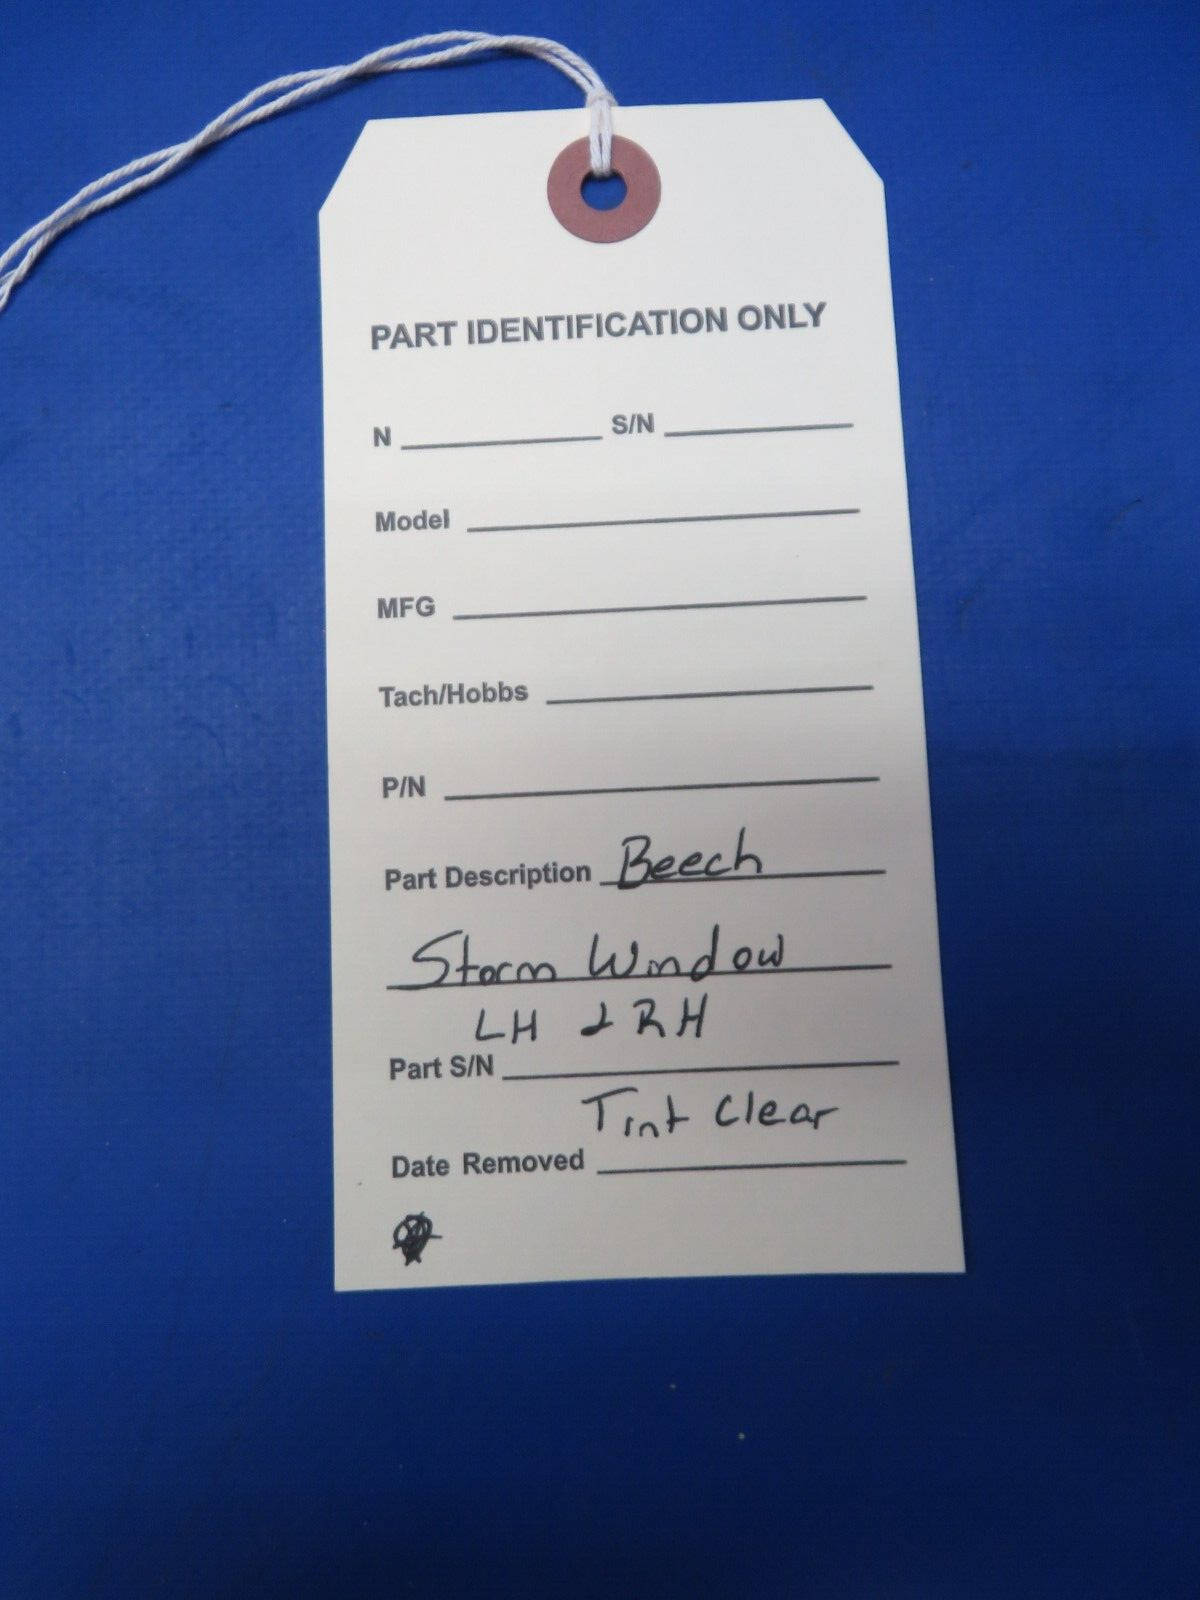 PART IDENTIFICATION ONLY
N S/N
Model
MFG
Tach/Hobbs
P/N
Part Description Beech
Storm Window
LH & RH
Part S/N
Tint Clear
Date Removed